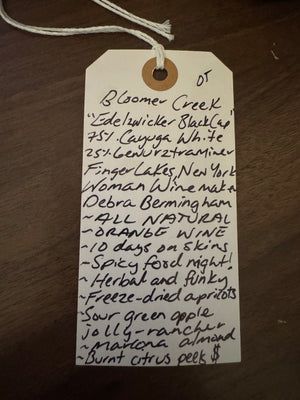 DT
Bloomer Creek
"Edelzwicker Black Cap"
75% Cayuga White
25% Gewürztraminer
Finger Lakes, New York
Woman Winemaker
Debra Bermingham
~ALL NATURAL
~ORANGE WINE
~10 days on skins
~Spicy food night!
~Herbal and funky
~Freeze-dried apricots
~Sour green apple
jolly-rancher
~marcona almond
~Burnt citrus peels $